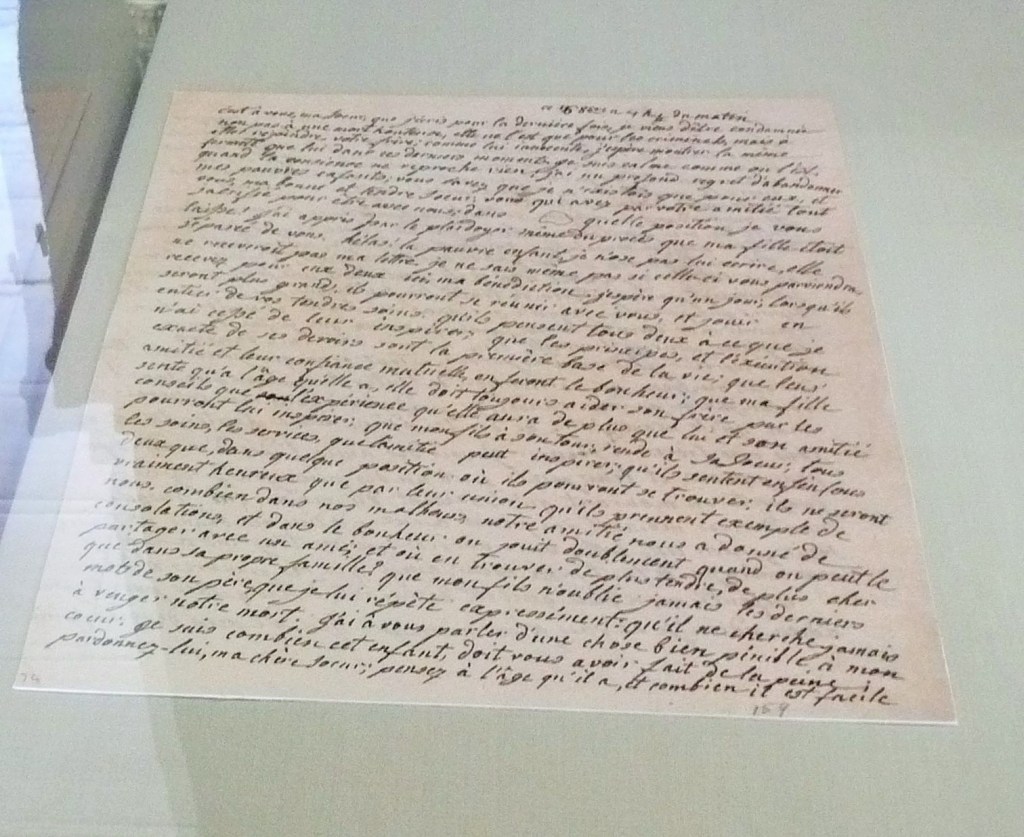 ce 16 8bre a 4 h ½ du matin
c'est à vous, ma soeur, que j'écris pour la dernière fois, je viens d'être condamnée
non pas à une mort honteuse, elle ne l'est que pour les criminels, mais à
aller rejoindre votre frère; comme lui innocente, j'espère montrer la même
fermeté que lui dans ces derniers moments. je suis calme comme on l'est
quand la conscience ne reproche rien; j'ai un profond regret d'abandonner
mes pauvres enfants; vous savez que je n'existois que pour eux, et
vous, ma bonne et tendre soeur; vous qui avez par votre amitié tout
sacrifié pour être avec nous; dans quelle position je vous
laisse! j'ai appris par le plaidoyer même du procès que ma fille étoit
séparée de vous. hélas! la pauvre enfant, je n'ose pas lui écrire, elle
ne recevroit pas ma lettre je ne sais même pas si celle-ci vous parviendra
recevez pour eux deux ici, ma bénédiction. j'espère qu'un jour, lorsqu'ils
seront plus grands, ils pourront se réunir avec vous, et jouir en
entier de vos tendres soins. qu'ils pensent tous deux à ce que je
n'ai cessé de leur inspirer; que les principes, et l'exécution
exacte de ses devoirs sont la première base de la vie; que leur
amitié et leur confiance mutuelle, en feront le bonheur; que ma fille
sente qu'à l'âge qu'elle a, elle doit toujours aider son frère par les
conseils que l'expérience qu'elle aura de plus que lui et son amitié
pourront lui inspirer; que mon fils à son tour, rende à sa soeur, tous
les soins, les services, que l'amitié peut inspirer; qu'ils sentent enfin tous
deux que, dans quelque position où ils pourront se trouver, ils ne seront
vraiment heureux que par leur union, qu'ils prennent exemple de
nous. combien dans nos malheurs, notre amitié nous a donné de
consolations, et dans le bonheur on jouit doublement quand on peut le
partager avec un ami; et où en trouver de plus tendre, de plus cher
que dans sa propre famille? que mon fils n'oublie jamais les derniers
mots de son père, que je lui répète expressément: qu'il ne cherche jamais
à venger notre mort. j'ai à vous parler d'une chose bien pénible à mon
coeur. je sais combien cet enfant, doit vous avoir fait de la peine;
pardonnez-lui, ma chère soeur; pensez à l'âge qu'il a, et combien il est facile
159